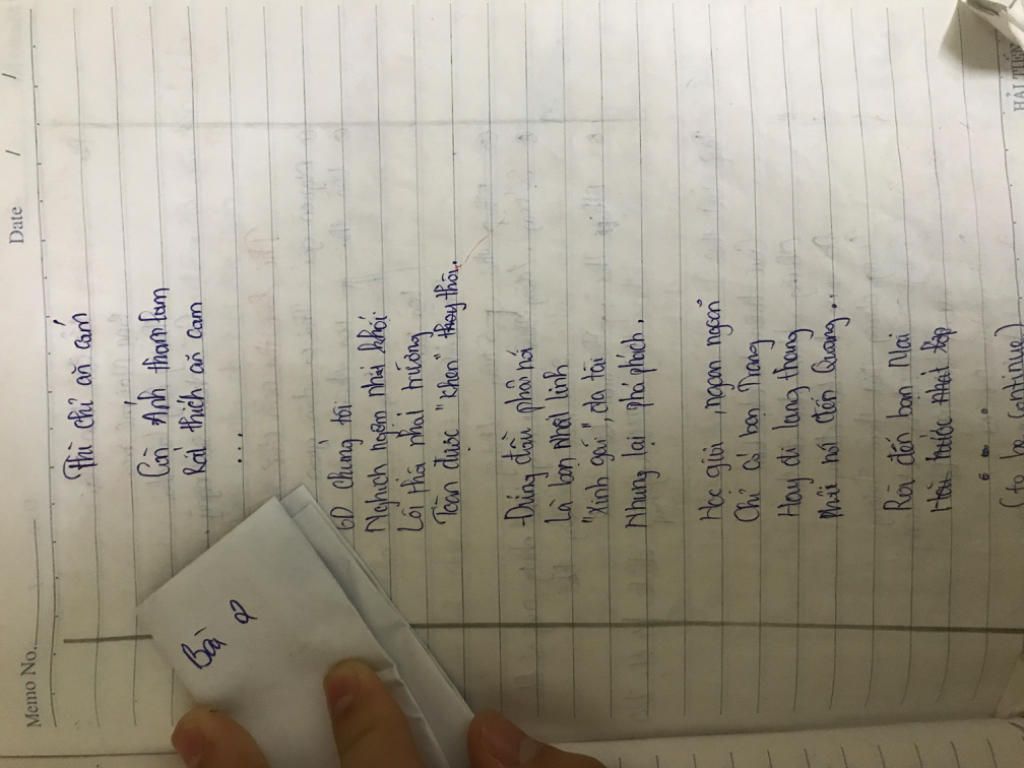 Memo No.
Date / /
Thì chỉ ăn bám
Còn Ánh tham lam
Rất thích ăn cam
...
6D chúng tôi
Nghịch ngợm nhất khối
Lôi thôi nhất trường
Toàn được "khen" thay thôi.
Đứng đầu phá
Là bạn Nhật Linh
"Xinh gái", đa tài
Nhưng lại phá phách.
Học giỏi, ngoan ngoãn
Chỉ có bạn Trang
Hay đi lang thang
Phải nói đến Quang..
Rồi đến bạn Mai
Hài hước nhất lớp
...
(to be continue)
Bài 2
HẢI TIẾN